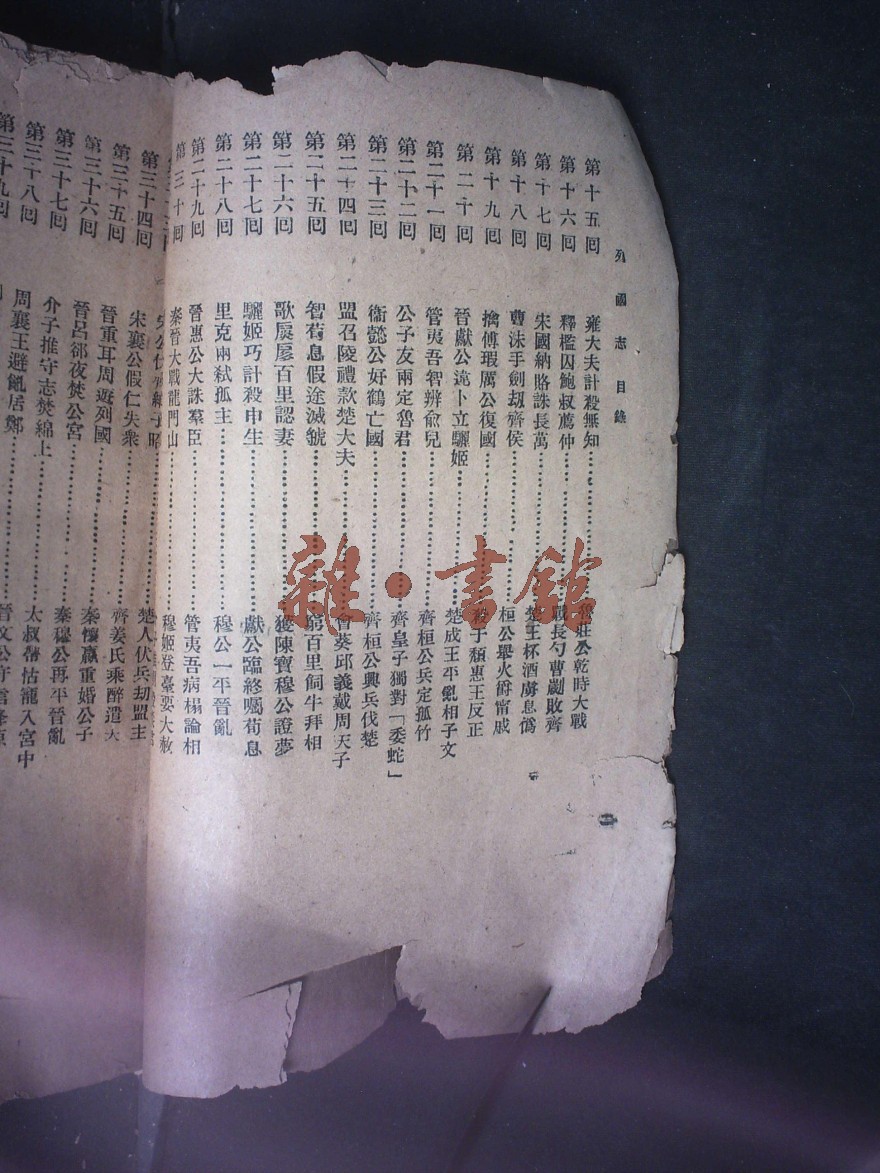 列國志目錄
第十五回 雍大夫計殺無知 魯莊公乾時大戰
第十六回 釋檻囚鮑叔薦仲 戰長勺曹劌敗齊
第十七回 宋國納賂誅長萬 楚王杯酒虜息媯
第十八回 曹沫手劍劫齊侯 桓公舉火爵甯戚
第十九回 擒傅瑕厲公復國 殺子頹惠王反正
第二十回 晉獻公違卜立驪姬 楚成王平亂相子文
第二十一回 管夷吾智辨兪兒 齊桓公兵定孤竹
第二十二回 公子友兩定魯君 齊皇子獨對「委蛇」
第二十三回 衞懿公好鶴亡國 齊桓公興兵伐楚
第二十四回 盟召陵禮款楚大夫 會葵邱義戴周天子
第二十五回 智荀息假途滅虢 窮百里飼牛拜相
第二十六回 歌扊扅百里認妻 獲陳寶穆公證夢
第二十七回 驪姬巧計殺申生 獻公臨終囑荀息
第二十八回 里克兩弒孤主 穆公一平晉亂
第二十九回 晉惠公大誅羣臣 管夷吾病榻論相
第三十回 秦晉大戰龍門山 穆姬登臺要大赦
第三十四回 宋襄公假仁失衆 齊姜氏乘醉遣
第三十五回 晉重耳周遊列國 秦懷嬴重婚公子
第三十六回 晉呂郤夜焚公宮 秦穆公再平晉亂
第三十七回 介子推守志焚綿上 太叔帶怙寵入宮中
第三十八回 周襄王避亂居鄭
第三十九回
楚人伏兵劫盟主
雜·書館